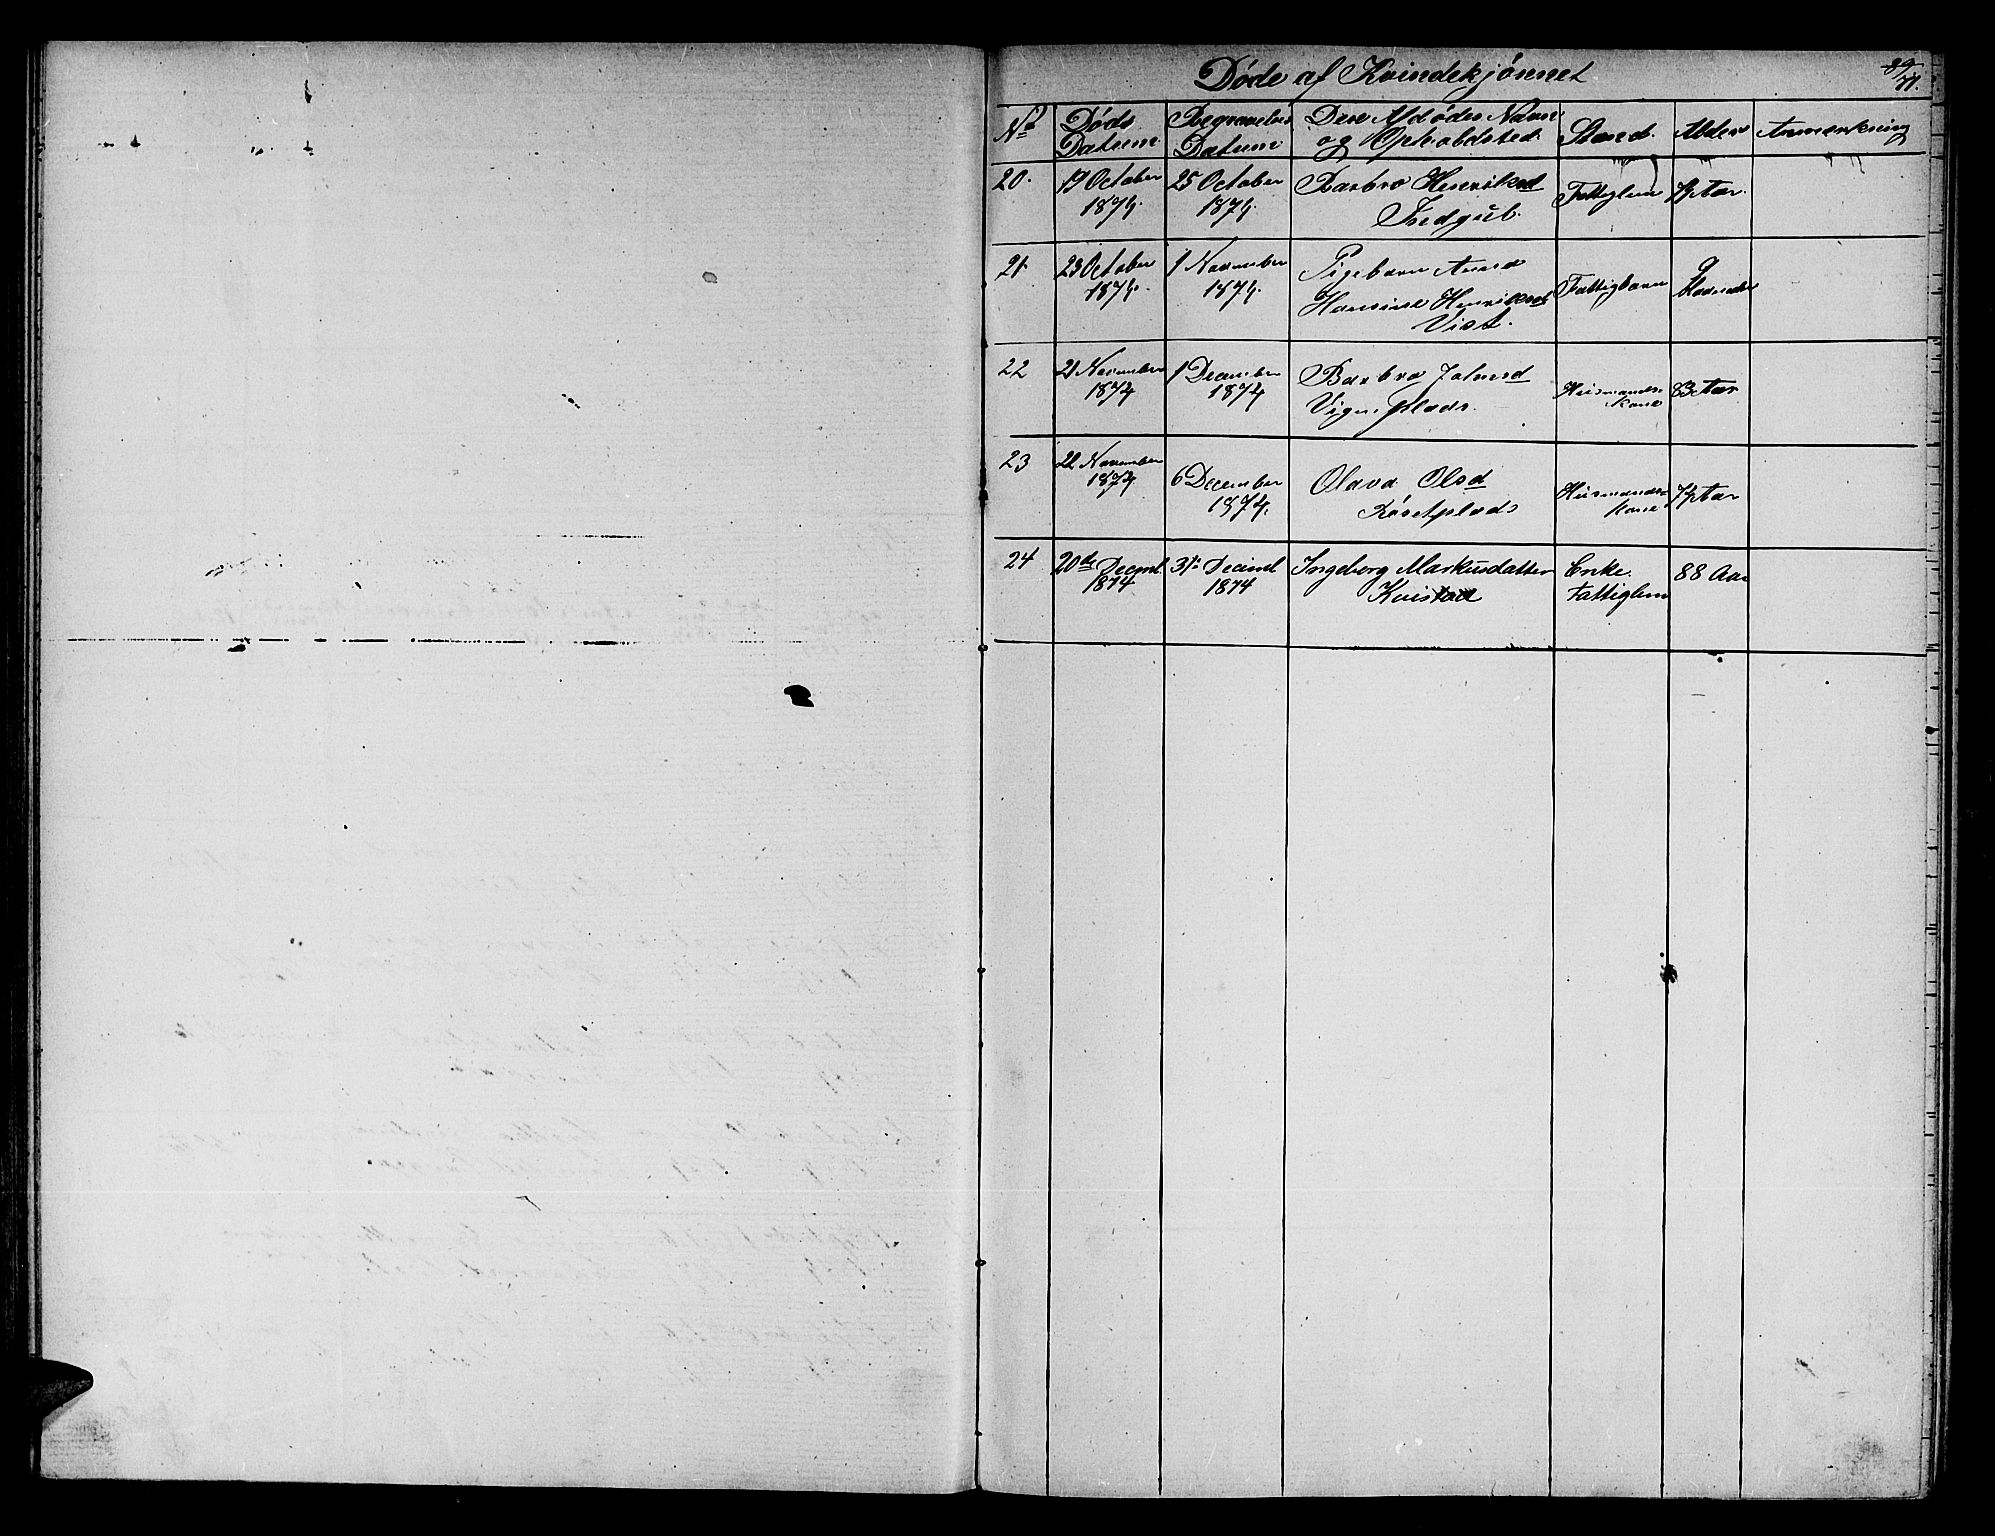 Døde af Kvindekjønnet
89/77.
No Døds Datum Begravelses Datum Den Afdødes Navn og Opholdsted Stand. Alder Anmærkning
20. 19 October 1874. 25 October 1874. Barbro Henriksd Fattiglem Aar.
21. 23 October 1874. 1 November 1874. Pigebarn Anna Hansine Henriksd Vist. Fattigbarn 9 Maaneder
22 21 November 1874 1 December 1874 Barbro Johnsd Vigens plads. Husmands kone 83 Aar
23 22 November 1874 6 December 1874. Olava Olsd Røsetplads Husmands= kone 74 Aar
24 20de Decmb. 1874 31te Decmb 1874 Ingeborg Markusdatter Kvistad Enke. Fattiglem 88 Aar